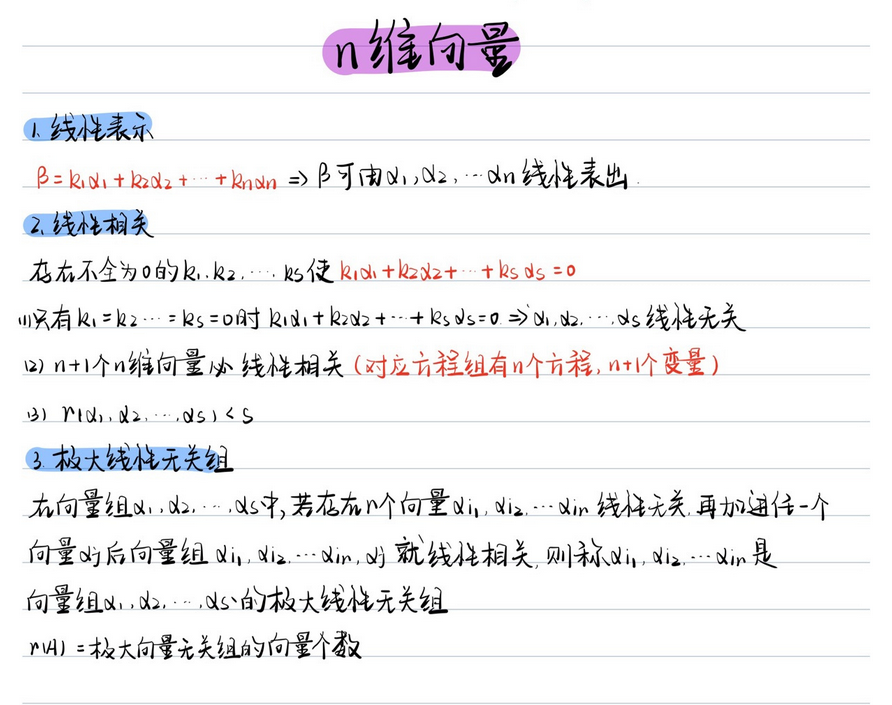 n维向量
1. 线性表示
β=k₁α₁+k₂α₂+…+kₙαₙ ⇒ β可由α₁,α₂,…αn线性表出.
2. 线性相关
存在不全为0的k₁,k₂,…,ks使k₁α₁+k₂α₂+…+ksαs=0
(1)只有k₁=k₂…=ks=0时k₁α₁+k₂α₂+…+ksαs=0.⇒α₁,α₂,…,αs线性无关
(2) n+1个n维向量必线性相关(对应方程组有n个方程,n+1个变量)
(3) r(α₁,α₂,…,αs)<s
3. 极大线性无关组
在向量组α₁,α₂,…,αs中,若存在n个向量αi₁,αi₂,…αin线性无关.再加进任一个
向量αj后向量组αi₁,αi₂…αin,αj就线性相关,则称αi₁,αi₂,…αin是
向量组α₁,α₂,…,αs的极大线性无关组
r(A)=极大向量无关组的向量个数